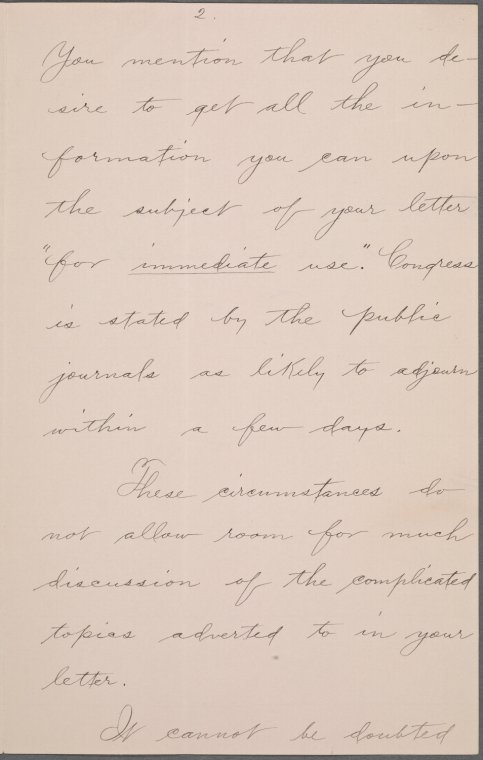 2.
You mention that you de-
sire to get all the in-
formation you can upon
the subject of your letter
"for immediate use". Congress
is stated by the public
journals as likely to adjourn
within a few days.
These circumstances do
not allow room for much
discussion of the complicated
topics adverted to in your
letter.
It cannot be doubted